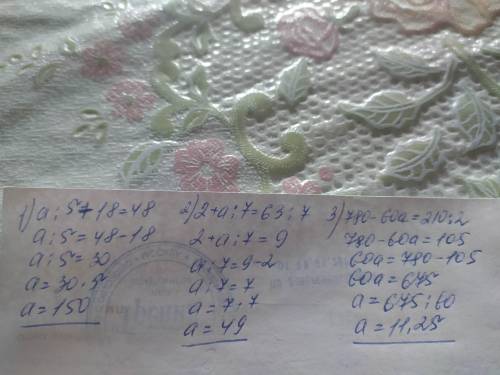 1) a:5+18=48
a:5=48-18
a:5=30
a=30·5
a=150
2) 2+a:7=63:7
2+a:7=9
a:7=9-2
a:7=7
a=7·7
a=49
3) 780-60a=210:2
780-60a=105
60a=780-105
60a=675
a=675:60
a=11,25